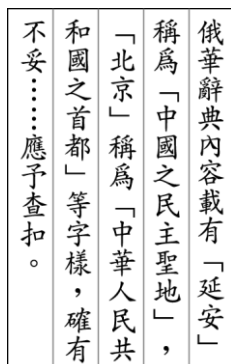 俄華辭典內容載有「延安」
稱爲「中國之民主聖地」，
「北京」稱爲「中華人民共
和國之首都」等字樣，確有
不妥……應予查扣。